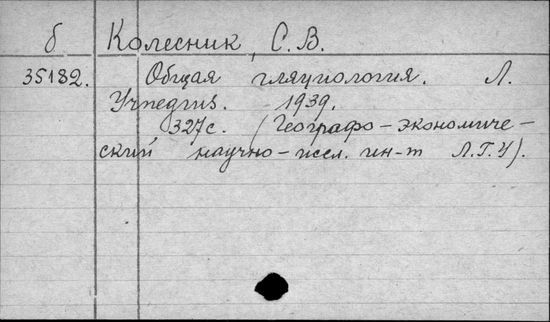 б Колесник, С. В.
35182. Общая гляциология. Л.
Учпедгиз. 1939.
327с. (Географо-экономиче-
ский научно-иссл. ин-т Л.Г.У).